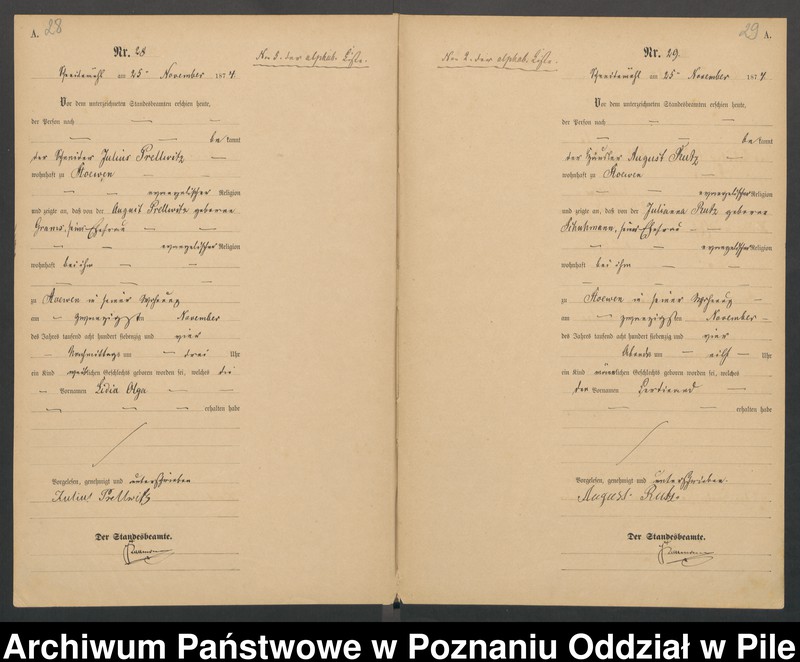 A. 28
Nr. 28
No 3. der alphab. Liste.
Schneidemühl am 25ten November 1874.
Vor dem unterzeichneten Standesbeamten erschien heute,
der Person nach
bekannt
der Julius Prellwitz
wohnhaft zu Stoewen
evangelischer Religion
und zeigte an, daß von der August Prellwitz geborene
Grams, seiner Ehefrau
evangelischer Religion
wohnhaft bei ihm
zu Stoewen in seiner Wohnung
am zwanzigsten November
des Jahres tausend acht hundert siebenzig und vier
Nachmittags um drei Uhr
ein Kind weiblichen Geschlechts geboren worden sei, welches die
Vornamen Lidia Olga
erhalten habe
Vorgelesen, genehmigt und unterschrieben
Julius Prellwitz
Der Standesbeamte.
29 A.
Nr. 29.
No 2. der alphab. Liste.
Schneidemühl am 25ten November 1874
Vor dem unterzeichneten Standesbeamten erschien heute,
der Person nach
bekannt
der Häusler August Rutz
wohnhaft zu Stoewen
evangelischer Religion
und zeigte an, daß von der Julianna Rutz geborene
seiner Ehefrau
evangelischer Religion
wohnhaft bei ihm
zu Stoewen in seiner Wohnung
am zwanzigsten November
des Jahres tausend acht hundert siebenzig und vier
Abends um eilf Uhr
ein Kind männlichen Geschlechts geboren worden sei, welches
der Vornamen Ferdinand
erhalten habe
Vorgelesen, genehmigt und unterschrieben.
August Rutz
Der Standesbeamte.
Archiwum Państwowe w Poznaniu Oddział w Pile